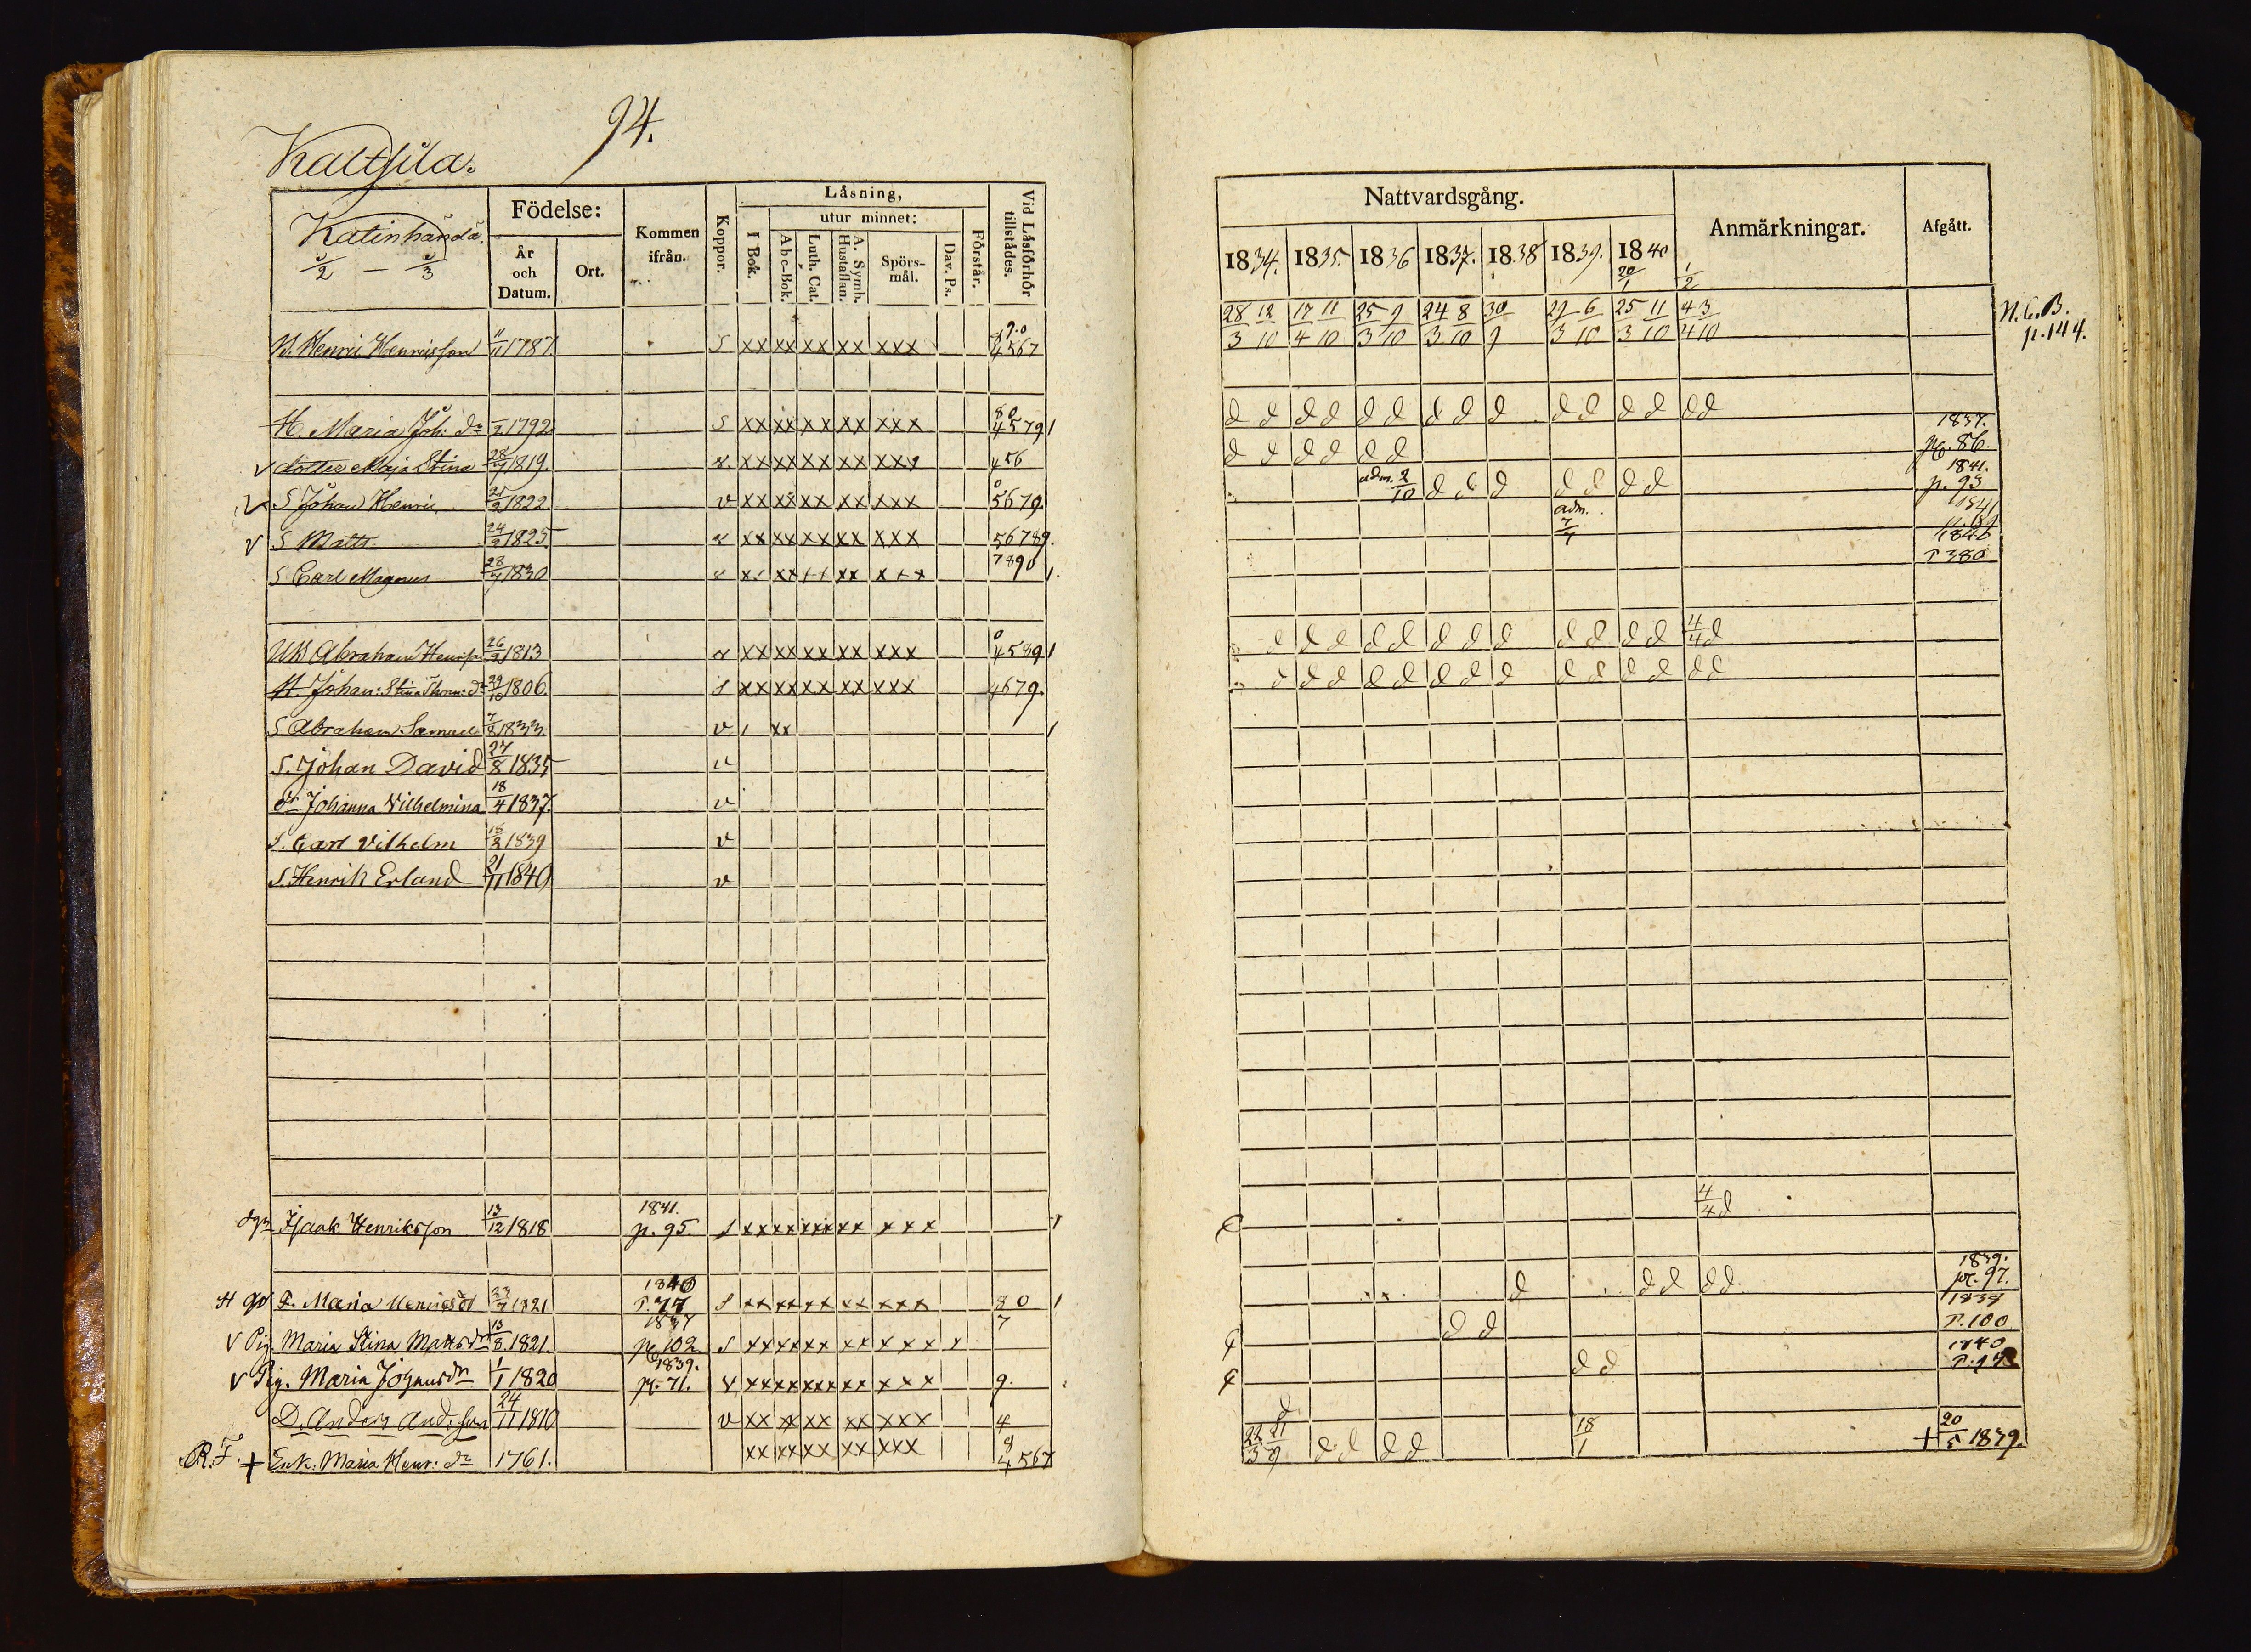 94.
Kaltsila.
Födelse:
Kommen ifrån.
Koppor.
Läsning,
I Bok.
utur minnet:
Abc-Bok.
Luth. Cat.
A. Symb. Hustaflan.
Spörs-mål.
Dav. Ps.
Förstår.
Vid Läsförhör tillstådes.
År och Datum.
Ort.
1/2 - 1/3
Nattvardsgång.
Anmärkningar.
Afgått.
1834. 1835. 1836 1837. 1838 1839. 1840
20/1 1/2
28/3 12/10 17/4 11/10 25/3 9/10 24/3 8/10 30/9 6/10 25/3 11/10 4/4 3/10
N.C.B. p. 144.
Henric Henricsson 11/11 1787 S xx xx xx xx xxx 4567
H. Maria Joh: dr 1792 S xx xx xx xx xxx 4579 1 d d d d d d d d d d d d d d d
v dotter Maja Stina 28/7 1819. xx xx xx xx xxx 456 d d d d d d 1837. pg. 86.
S Johan Henric 1822 v xx xx xx xx xxx 5679. adm. 2/10 d d d d d d d 1841. p. 93
v S Matts 24/2 1825 xx xx xx xx xxx 56789. adm. 1841
S Carl Magnus 28/7 1830 7890 1. P 380
Abraham Henrs 26/2 1813 xx xx xx xx xxx 4589 1 d d d d d d d d d d d d 4/4 d
H. Johan: Stina Thom: dr 29/10 1806. S xx xx xx xx xxx 4679. d d d d d d d d d d d d d d
S Abraham Samuel 7/2 1833. v xx 1
S. Johan David 27/8 1835
dr Johanna Vilhelmina 18/4 1837. v
S. Carl Vilhelm 1839 v
S. Henrik Erland 21/11 1840 v
Isaak Henriksson 13/12 1818 1841. p. 95. S xx xx xx xx xxx 4/4 d
Maria Henricsdr 1821 1840 P. 77 S xx xx xx xx xxx 80 1 d d d d d 1839. pg. 97.
v Pig. Maria Stina Mattsdr 13/8 1821. 1837 pg 102 S xx xx xx xx xxx 7 d d P. 100
v Pig. Maria Johansdr 1/1 1820 1839. pg. 71. v xx xx xx xx xxx 9. d d 1840
D. Anders And:sson 24/11 1810 v xx xx xx xx xxx 4 d
R.F. + Enk: Maria Henr: dr 1761. xx xx xx xx xxx 4567 22/3 21/9 d d d d 18/1 + 20/5 1839.